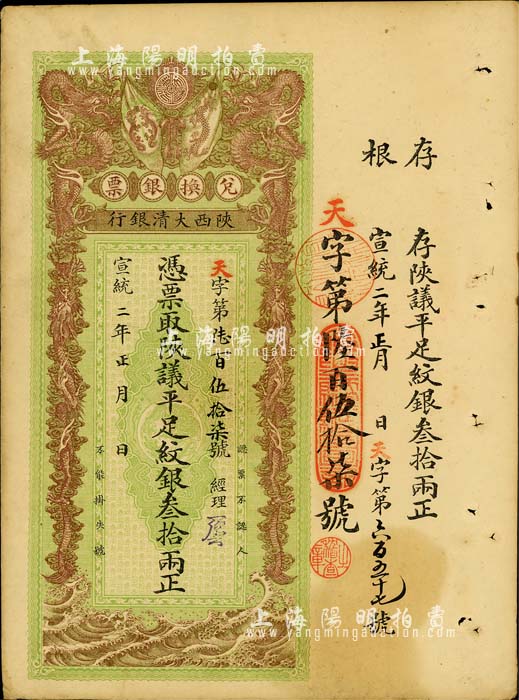 上海陽明拍賣
www.yangmingauction.com
存根
存陝議平足紋銀叁拾兩正
宣統二年正月 日 天字第六百五十七號
天字第陸百伍拾柒號
兌換銀票
陝西大清銀行
天字第陸百伍拾柒號 經理
憑票取陝議平足紋銀叁拾兩正
宣統二年正月 日
認票不認人
不能掛失號
上海陽明拍賣
www.yangmingauction.com
上海陽明拍賣
www.yangmingauction.com